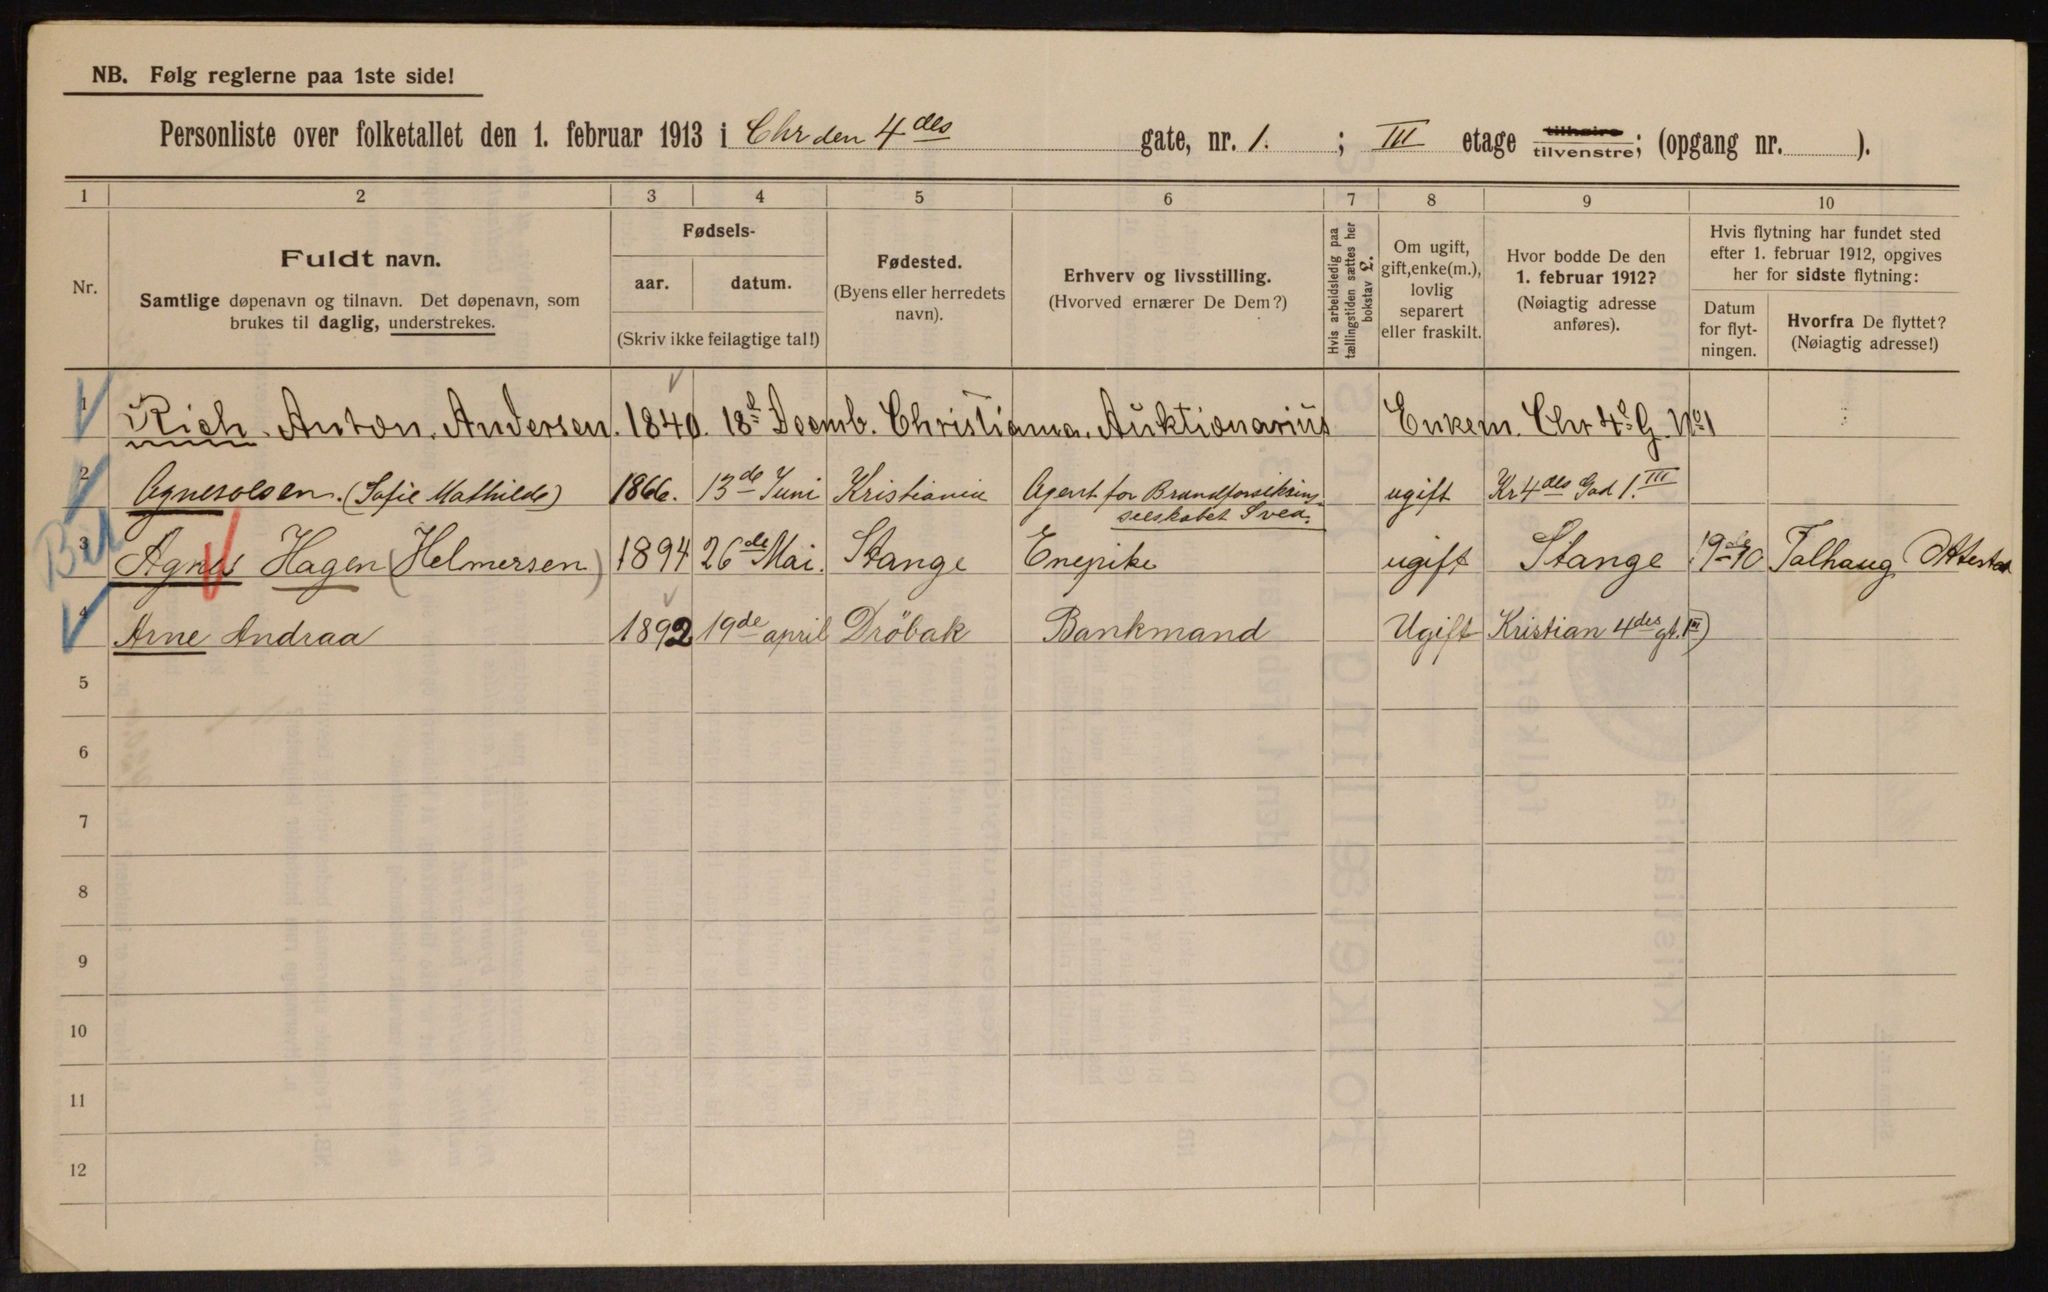 NB. Følg reglerne paa 1ste side!
Personliste over folketallet den 1. februar 1913 i Chr den 4des gate, nr. 1. ; III etage tilhøire tilvenstre; (opgang nr. ).
1 2 3 4 5 6 7 8 9 10
Nr.
Fuldt navn.
Samtlige døpenavn og tilnavn. Det døpenavn, som
brukes til daglig, understrekes.
Fødsels-
aar. datum.
(Skriv ikke feilagtige tal!)
Fødested.
(Byens eller herredets
navn).
Erhverv og livsstilling.
(Hvorved ernærer De Dem?)
Hvis arbeidsledig paa
tællingstiden sættes her
bokstav £.
Om ugift,
gift, enke(m.),
lovlig
separert
eller fraskilt.
Hvor bodde De den
1. februar 1912?
(Nøiagtig adresse
anføres).
Hvis flytning har fundet sted
efter 1. februar 1912, opgives
her for sidste flytning:
Datum
for flyt-
ningen.
Hvorfra De flyttet?
(Nøiagtig adresse!)
1 Rich. Anton. Andersen. 1840. 18d Decmb. Christiania. Auktionarius Enkem. Chr 4s G. No 1
2 Agnesolsen. (Sofie Mathilde) 1866. 13de Juni Kristiania Agent for Brandforsikrings
selskabet Svea. ugift Kr 4des Gad 1. III
Bet
3 Agnes Hagen (Helmersen) 1894 26de Mai. Stange Enepike ugift Stange 19de 10 Talhaug
4 Arne Andraa 1892 19de april Dröbak Bankmand Ugift Kristian 4des gt. 1 III)
5
6
7
8
9
10
11
12